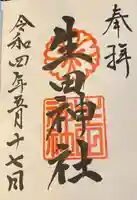 奉拝
生田神社
令和四年五月十七日